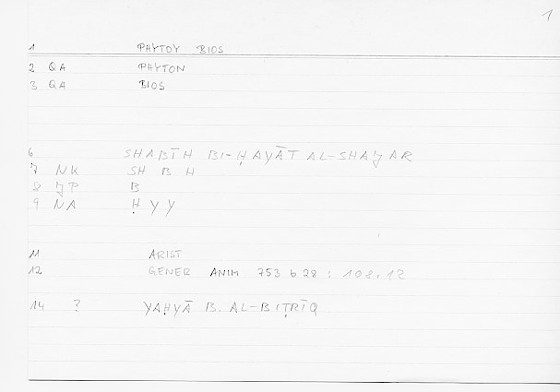 1
1 PHYTOY BIOS
2 QA PHYTON
3 QA BIOS
6 SHABĪH BI-ḤAYĀT AL-SHAJAR
7 NK SH B H
8 JP B
9 NA Ḥ Y Y
11 ARIST
12 GENER ANIM 753 b 28 : 108,12
14 ? YAḤYĀ B. AL-BIṬRĪQ